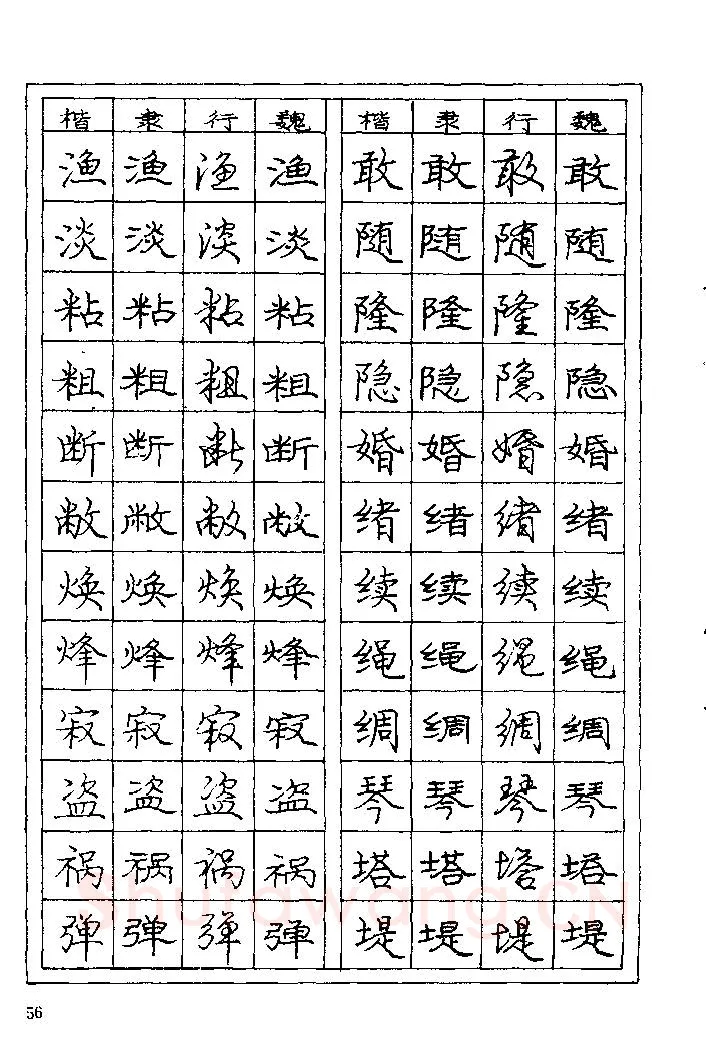 楷 隶 行 魏 楷 隶 行 魏
渔 渔 渔 渔 敢 敢 敢 敢
淡 淡 淡 淡 随 随 随 随
粘 粘 粘 粘 隆 隆 隆 隆
粗 粗 粗 粗 隐 隐 隐 隐
断 断 断 断 婚 婚 婚 婚
敝 敝 敝 敝 绪 绪 绪 绪
焕 焕 焕 焕 续 续 续 续
烽 烽 烽 烽 绳 绳 绳 绳
寂 寂 寂 寂 绸 绸 绸 绸
盗 盗 盗 盗 琴 琴 琴 琴
祸 祸 祸 祸 塔 塔 塔 塔
Shufawang.CN
弹 弹 弹 弹 堤 堤 堤 堤
56